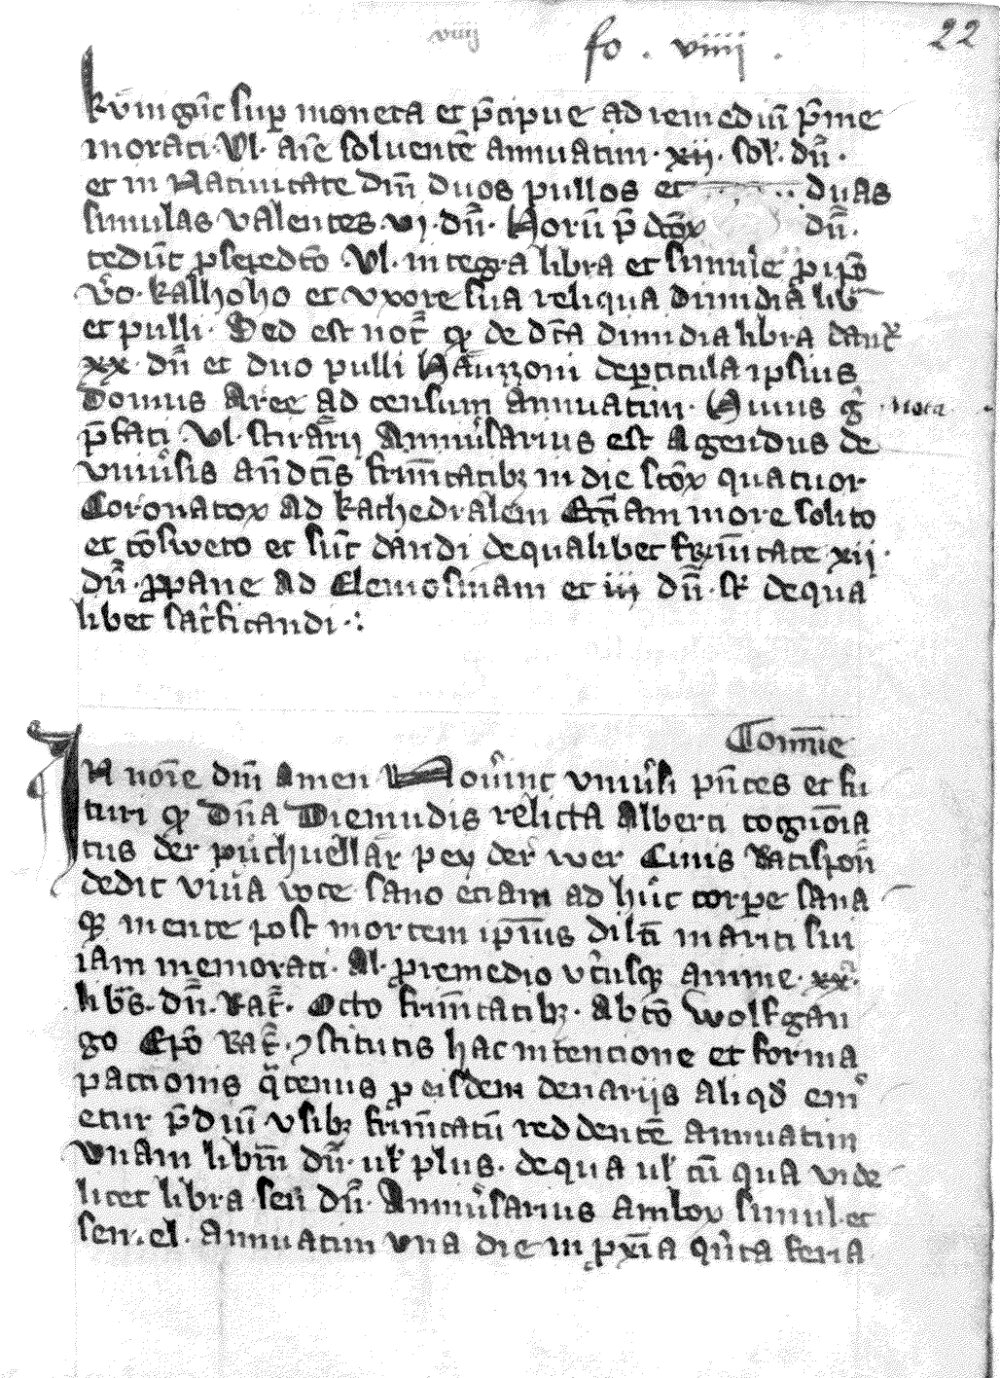 viiij
fo . viiij .
22
kv̄ingn̄c sup moneta et p̄cipue ad remediū p̄me
morati · Vl · Arē soluentē annuatim · xij · sol · dn̄ ·
et in Natiuitate dn̄i duos pullos et duas
simulas valentes · vj · dn̄ · Horū p̄dcōꝝ dn̄ ·
cedūt Vl · integra libra et simule p ip̄o
v̄o · kalhoho et vxore sua reliqua dimidia lib̄
et pulli · Sed est not̄ ꝙ de dc̄a dimidia libra dant̄
xx · dn̄ et duo pulli Hauzzoni de ꝑticula ipsius
domus Aree ad censum annuatim · Huius g̊ · Nota
p̄fati · Vl · stirarij Anniūsarius est Agendus de
vniūsis an̄dcīs frn̄itatibꝫ in die scōꝝ quatuor
Coronatoꝝ ad kathedralem Ecc̄iam more solito
et cōsweto et sūt dandi de qualibet frn̄itate xij ·
dn̄ · ꝓ pane ad Elemosinam et iij dn̄ · de qua
libet sac̄ficandi ·:
Com̄ue
IN noīe dn̄i Amen Nouīnt vniūsi pn̄tes et fu
turi ꝙ Dn̄a Diemudis relicta Alberti cognoīa
tus der puchuellar pey der wer Ciuis Ratispon̄
dedit viūa voce sano etiam ad hūc corpe sana
qꝫ mente post mortem ip̄ius dilc̄i mariti sui
iam memorati · Al · ꝓ remedio vt̄usqꝫ anime · xx ·
libs̄ · dn̄ · Rat̄ · Octo frn̄itatibꝫ · Ab tō Wolfgan
go Ep̄o Rat̄ · ꝯstitutis hac intencione et forma
pactionis q̄tenus ꝓ eisdem denarijs aliqd̄ em̄
etur p̄diū vsibꝫ frn̄itatū reddentē annuatim
vnam libm̄ dn̄ · ul̄ plus · de qua ul̄ cū qua vide
licet libra seu dn̄ · Anniūsarius amboꝝ simul et
sen · el · annuatim vna die in pxīa qn̄ta feria